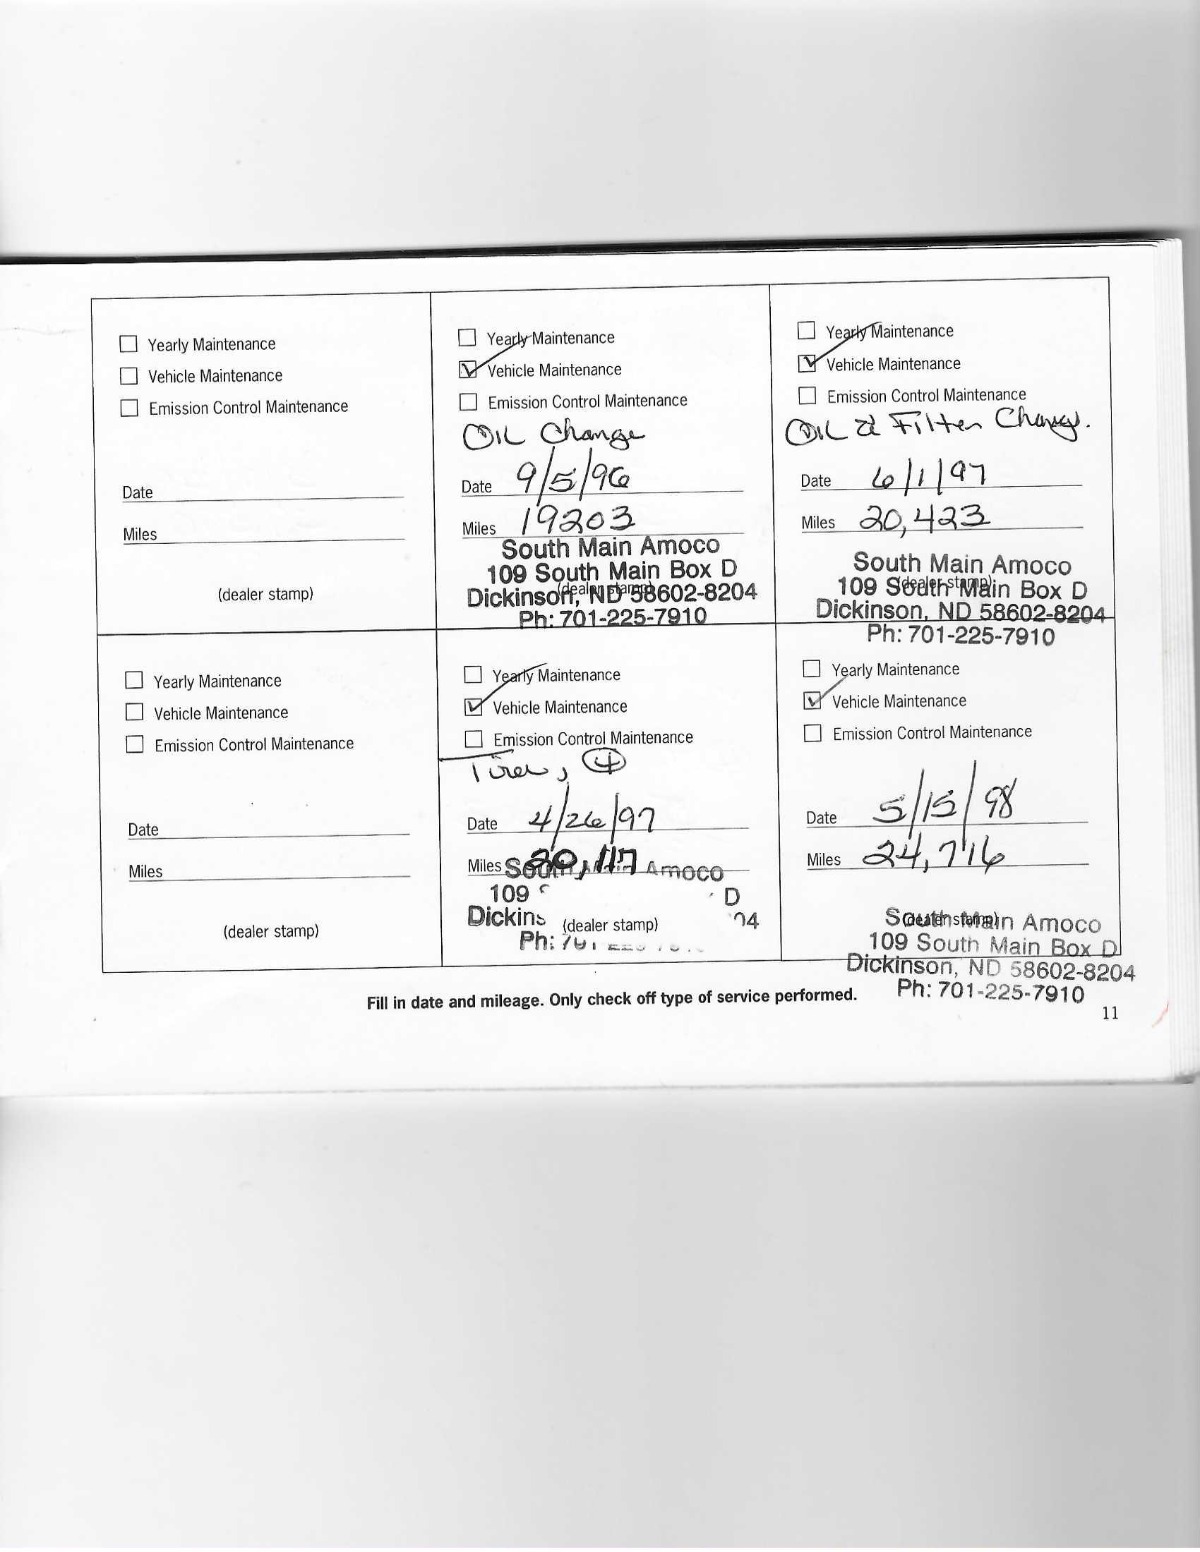 Yearly Maintenance
Vehicle Maintenance
Emission Control Maintenance
Date
Miles
(dealer stamp)
Yearly Maintenance
Vehicle Maintenance
Emission Control Maintenance
OIL Change
Date 9/5/96
Miles 19203
South Main Amoco
109 South Main Box D
Dickinson, ND 58602-8204
(dealer stamp)
Ph: 701-225-7910
Yearly Maintenance
Vehicle Maintenance
Emission Control Maintenance
OIL & Filter Change.
Date 6/1/97
Miles 20,423
South Main Amoco
109 South Main Box D
(dealer stamp)
Dickinson, ND 58602-8204
Ph: 701-225-7910
Yearly Maintenance
Vehicle Maintenance
Emission Control Maintenance
Date
Miles
(dealer stamp)
Yearly Maintenance
Vehicle Maintenance
Emission Control Maintenance
Tires, 4
Date 4/26/97
Miles 20,117
Amoco
109 D
Dickins 04
(dealer stamp)
Ph:
Yearly Maintenance
Vehicle Maintenance
Emission Control Maintenance
Date 5/15/98
Miles 24,716
South Main Amoco
(dealer stamp)
109 South Main Box D
Dickinson, ND 58602-8204
Ph: 701-225-7910
Fill in date and mileage. Only check off type of service performed.
11